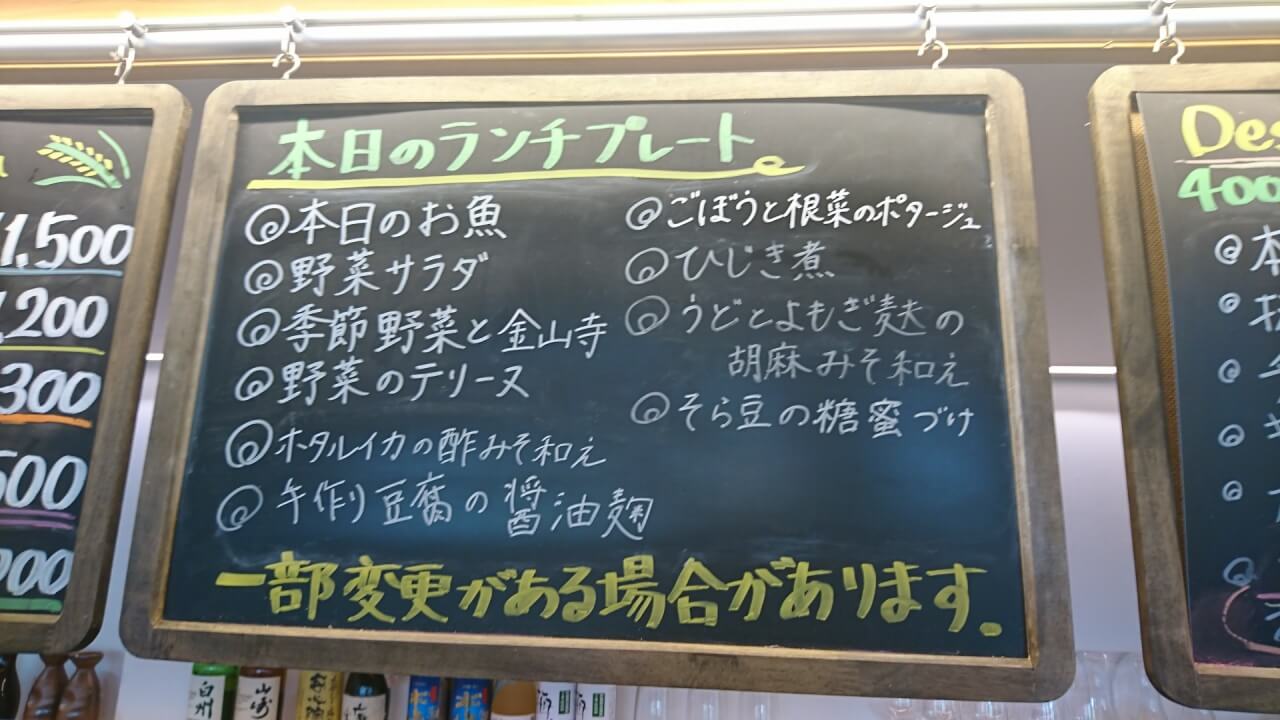 1,500
,200
300
500
900
本日のランチプレート
◎本日のお魚
◎野菜サラダ
◎季節野菜と金山寺
◎野菜のテリーヌ
◎ホタルイカの酢みそ和え
◎手作り豆腐の醤油麹
◎ごぼうと根菜のポタージュ
◎ひじき煮
◎うどとよもぎ麩の
胡麻みそ和え
◎そら豆の糖蜜づけ
一部変更がある場合があります。
Des
400
◎本
白州
山崎